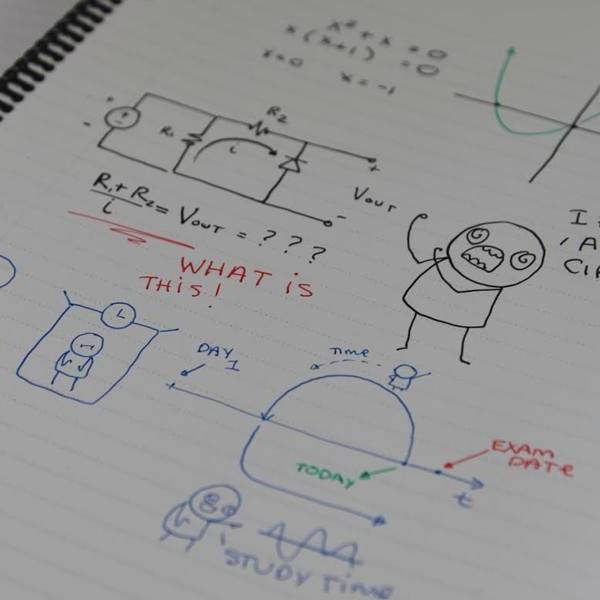 x² + x = 0
x(x+1) = 0
x=0 x=-1
R2
R1
i
+
-
+
-
VOUT
R1+R2/i = VOUT = ? ? ?
WHAT iS
THiS!
I
'A
L
DAY
1
Time
EXAM
DATE
TODAY
t
STUDY Time